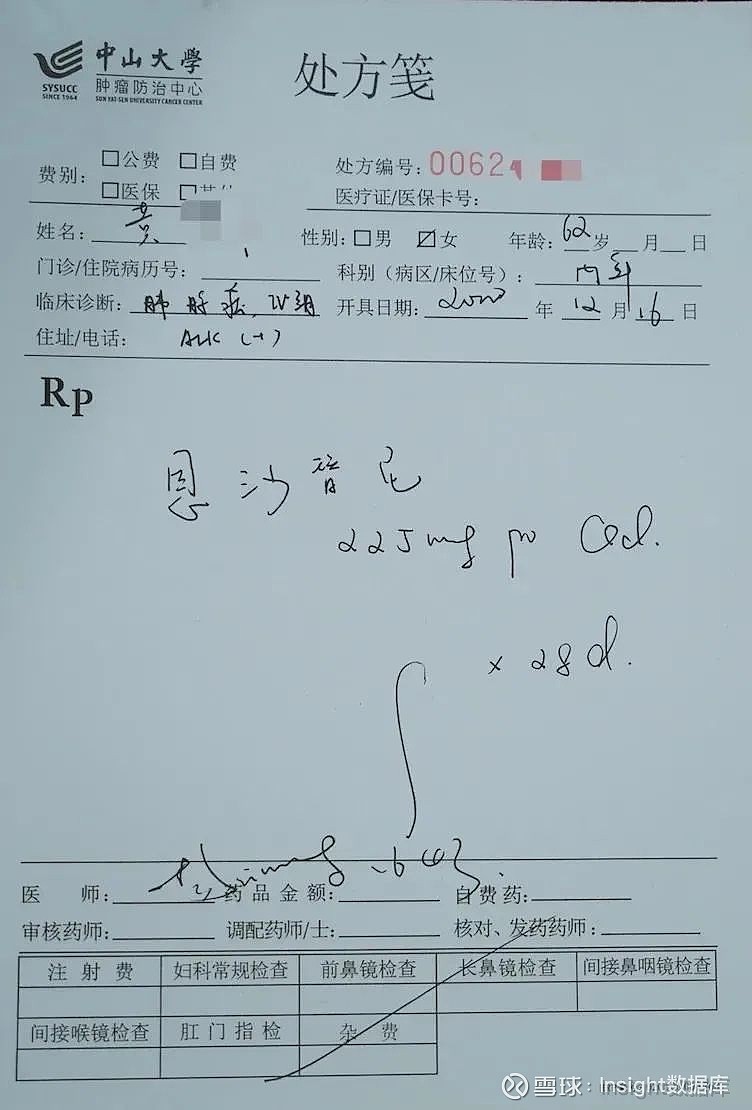 中山大學
肿瘤防治中心
SYSUCC
SINCE 1964
SUN YAT-SEN UNIVERSITY CANCER CENTER
处方笺
费别: 公费 自费
医保
处方编号: 0062
医疗证/医保卡号:
姓名: 黄 性别: 男 女 年龄: 62 岁 月 日
门诊/住院病历号: 科别(病区/床位号): 内科
临床诊断: 肺腺癌, IV期 开具日期: 2020 年 12 月 16 日
住址/电话: ALK (+)
Rp
恩沙替尼
225mg po Qd.
× 28d.
医 师: 药品金额: 自费药:
审核药师: 调配药师/士: 核对、发药药师:
注射费 妇科常规检查 前鼻镜检查 长鼻镜检查 间接鼻咽镜检查
间接喉镜检查 肛门指检 杂费
雪球: Insight数据库